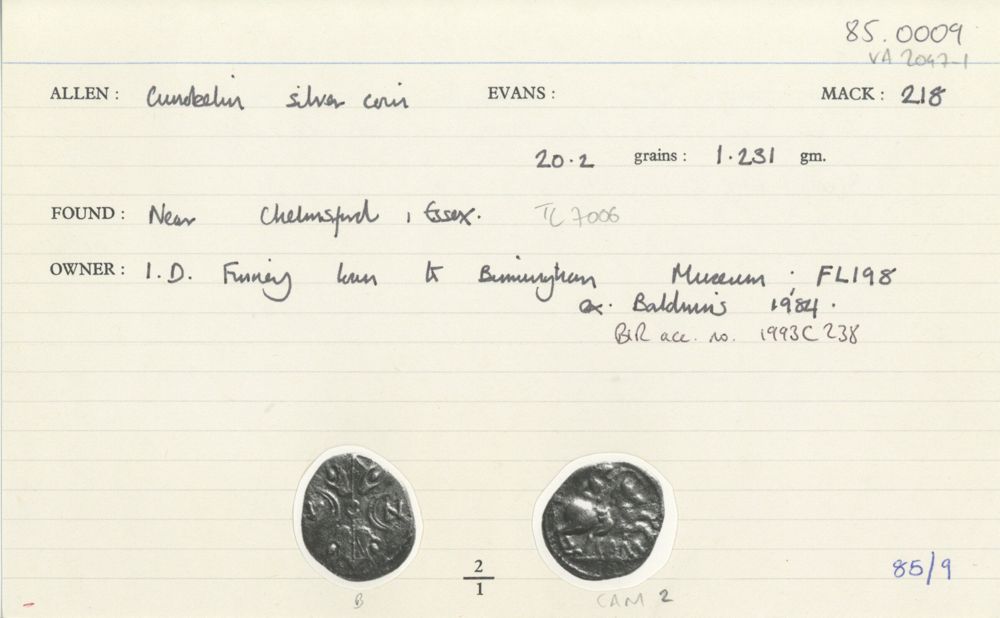 85.0009
VA 2047-1
ALLEN : Cunobelin silver coin EVANS : MACK : 218
20.2 grains : 1.231 gm.
FOUND : Near Chelmsford, Essex. TL 7006
OWNER : I.D. Finney loan to Birmingham Museum ; FL198
ex. Baldwins 1984.
BIR acc. no. 1993C238
2
1
85/9
B CAM 2